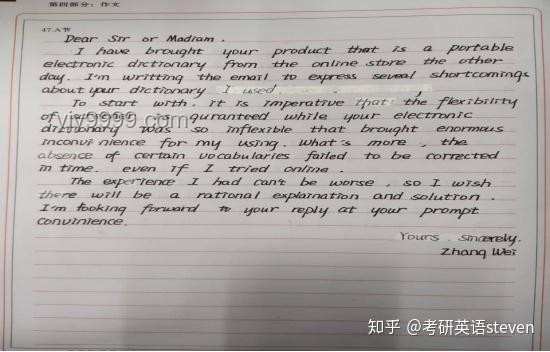 第四部分：作文
47.A节
Dear Sir or Madiam.
I have brought your product that is a portable
electronic dictionary from the online store the other
day. I'm writting the email to express seveal shortcomings
about your dictionary I used.
To start with, it is imperative that the flexibility
of guranteed while your electronic
dictionary was so inflexible that brought enormous
inconvinience for my using. What's more, the
absence of certain vocabularies failed to be corrected
in time. even if I tried online.
The experience I had can't be worse, so I wish
there will be a rational explaination and solution.
I'm fooking forward to your reply at your prompt
convinience.
Yours. Sincerely.
Zhang Wei
zyjy9999.com
知乎 @考研英语steven